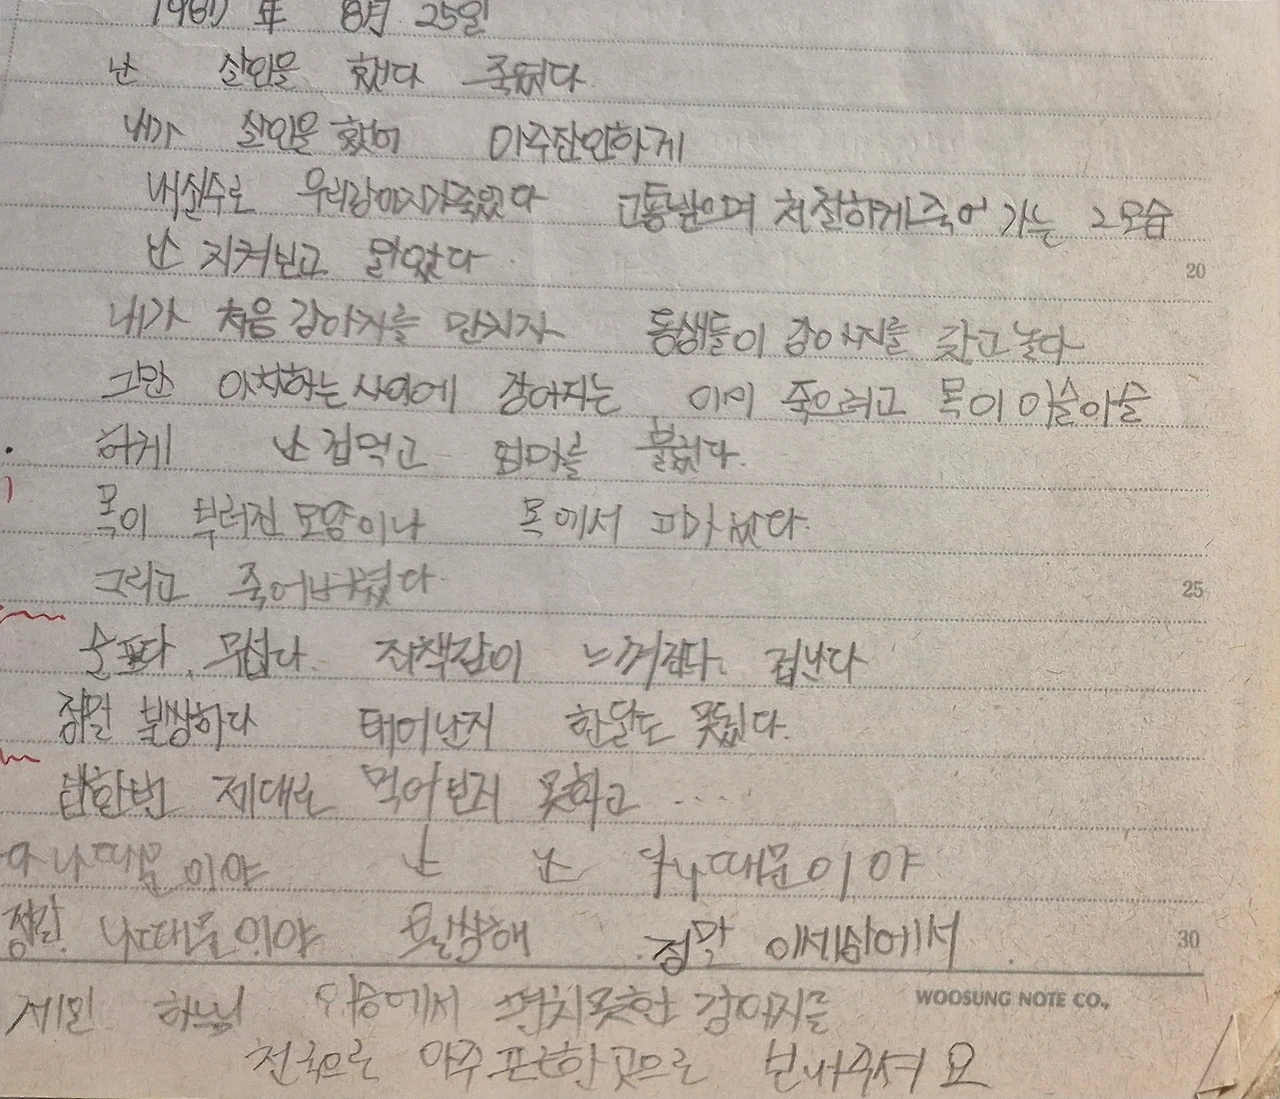 年 8月 25일
난 살인을 했다 죽였다
내가 살인을 했어 아주잔인하게
내실수로 우리강아지가죽었다 고통받으며 처절하게죽어 가는 그모습
난 지켜보고 말았다
내가 처음 강아지를 만지자 동생들이 강아지를 갖고놀다
그만 아차하는사이에 강아지는 이미 죽으려고 목이 아슬아슬
하게 난 겁먹고 엄마를 불렀다.
목이 부러진모양이나 목에서 피가났다.
그리고 죽어버렸다
슬프다. 무섭다. 자책감이 느껴진다. 겁난다
정말 불쌍하다 태어난지 한달도 못됬다.
밥한번 제대로 먹어보지 못하고 ....
나때문이야 난 난 나때문이야
정말 나때문이야 불쌍해 정말 이세상에서
20
25
30
WOOSUNG NOTE CO.
제발 하느님 이승에서 펴지못한 강아지를
천국으로 아주 편한곳으로 보내주셔요